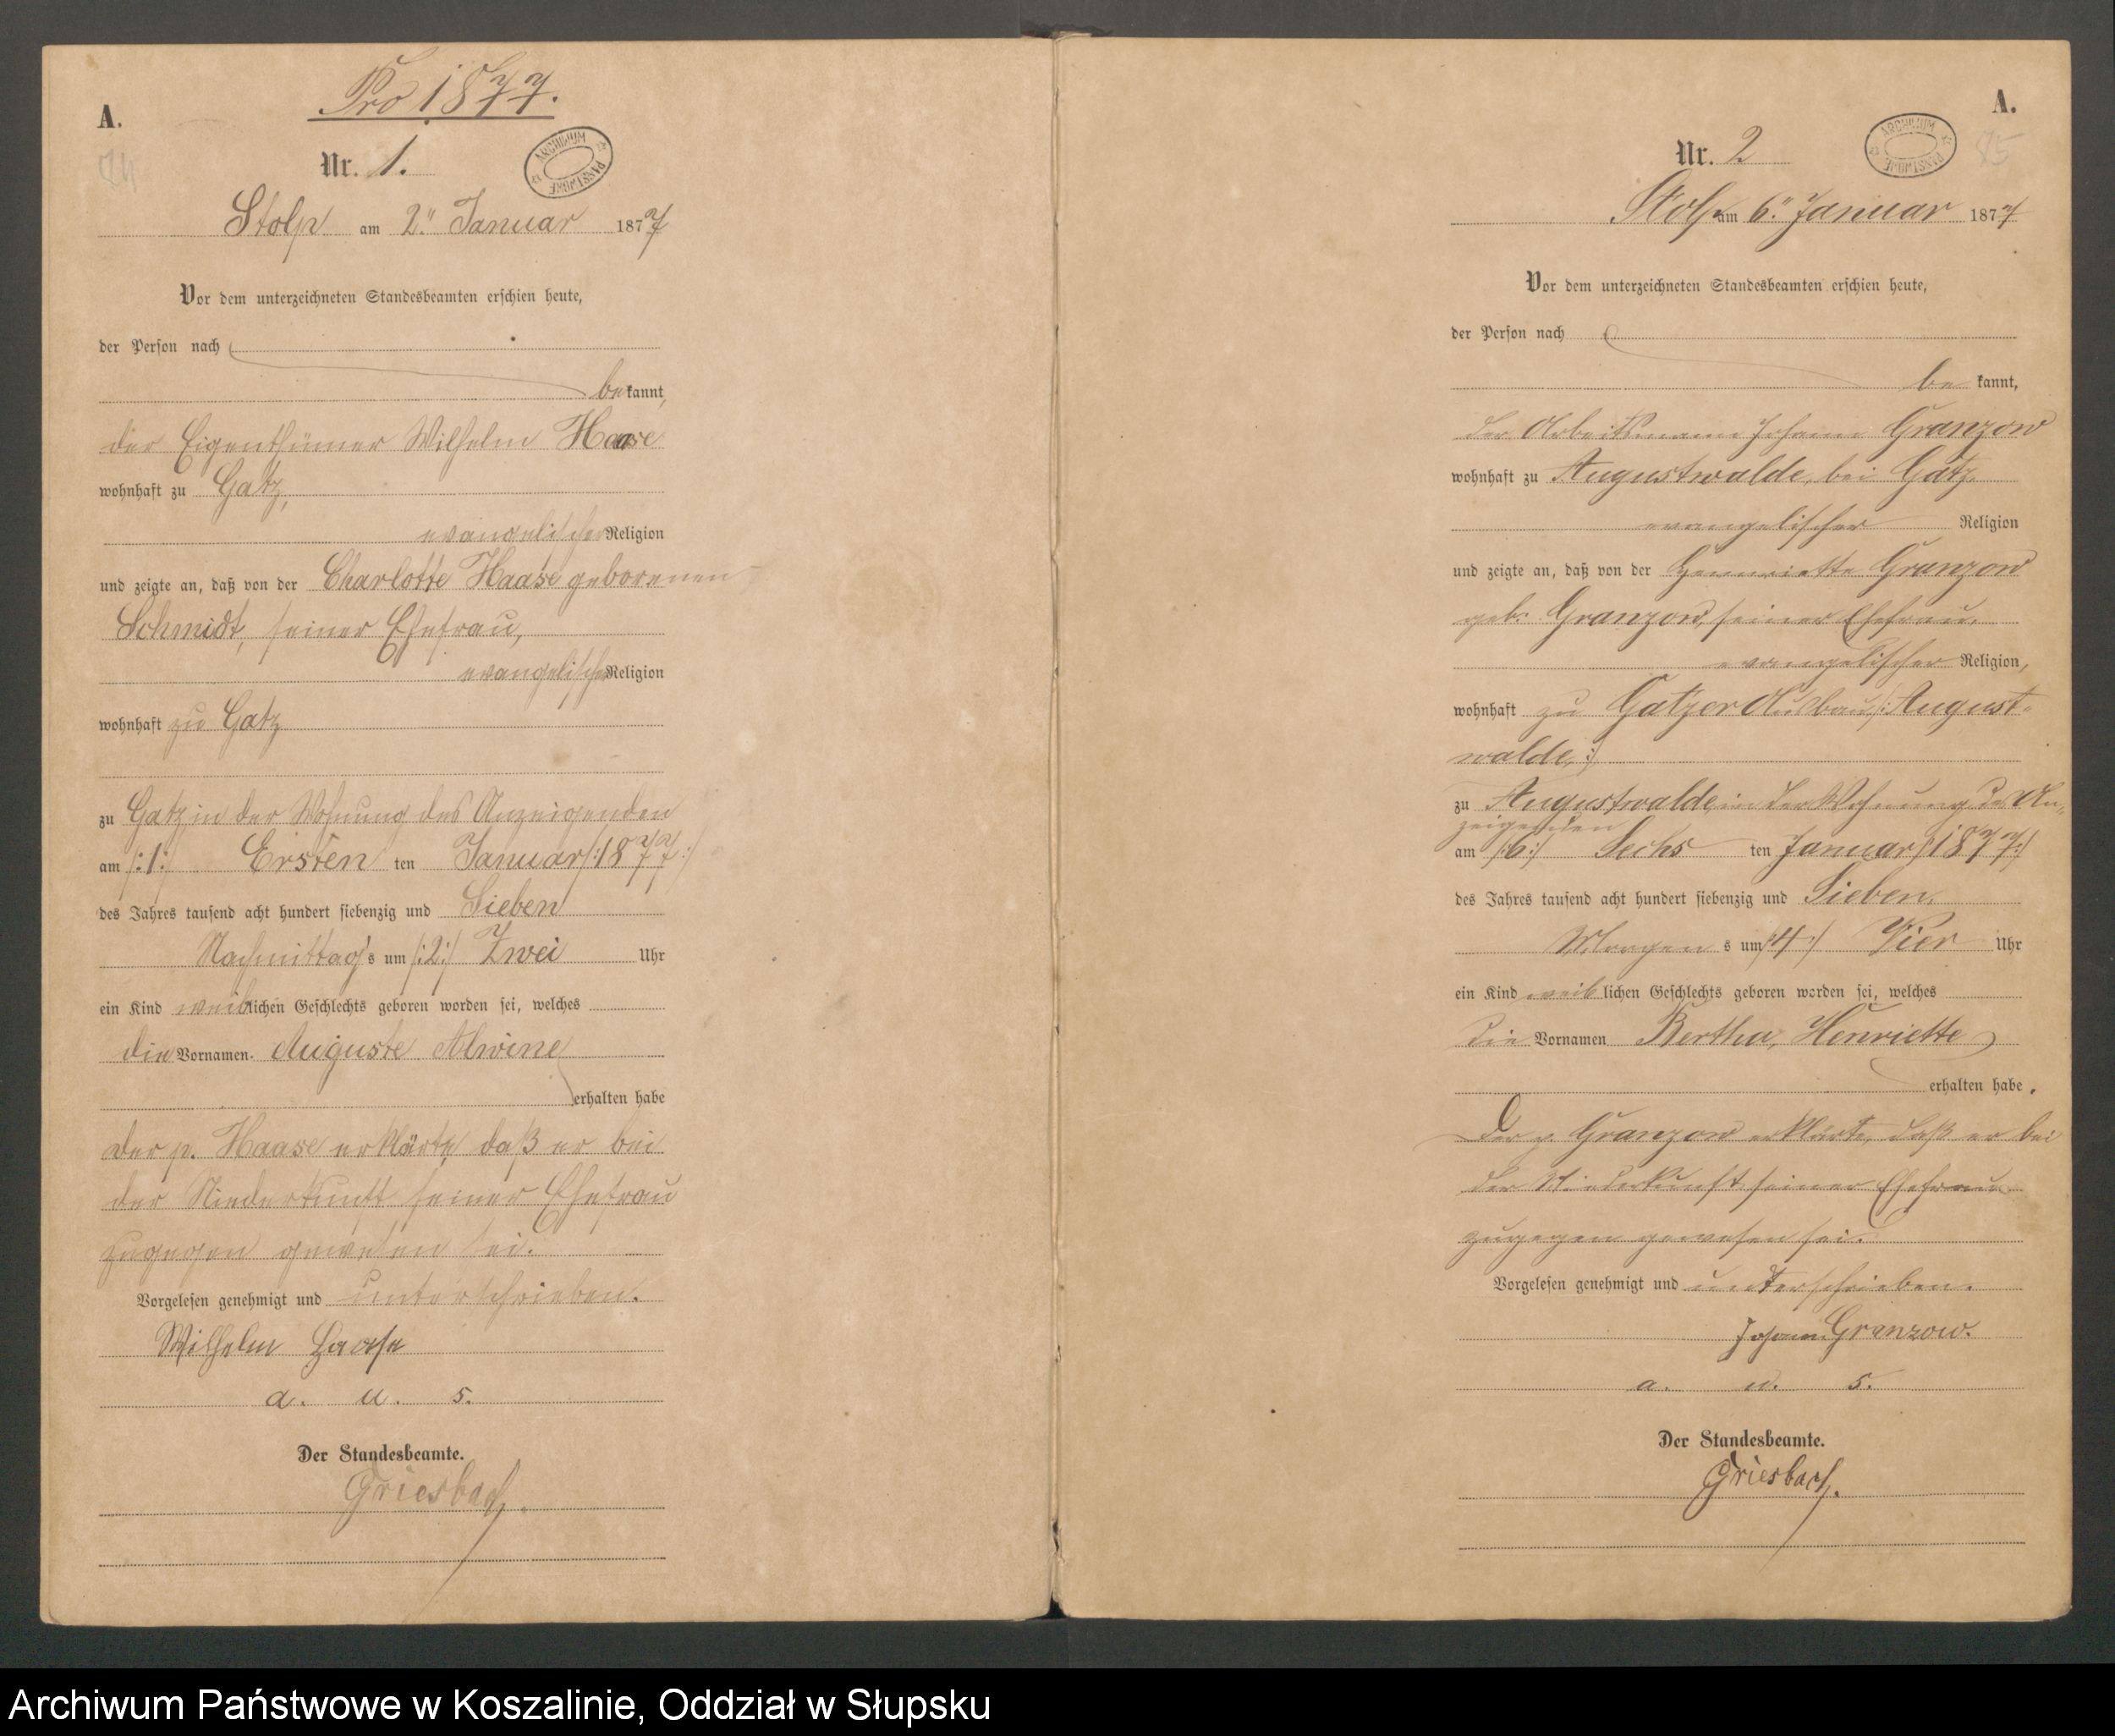 A.
Pro 1877.
Nr. 1.
ARCHIWUM PAŃSTWOWE
Stolp am 2." Januar 1877
Vor dem unterzeichneten Standesbeamten erschien heute,
der Person nach
bekannt,
der Eigenthümer Wilhelm Haase
wohnhaft zu Gatz,
evangelischer Religion
und zeigte an, daß von der Charlotte Haase geborenen
Schmidt, seiner Ehefrau,
evangelischer Religion
wohnhaft zu Gatz
zu Gatz in der Wohnung des Anzeigenden
am /:1:/ Ersten ten Januar /:1877:/
des Jahres tausend acht hundert siebenzig und Sieben
Nachmittags um /:2:/ Zwei Uhr
ein Kind weiblichen Geschlechts geboren worden sei, welches
die Vornamen Auguste Alwine
erhalten habe
der p. Haase erklärte, daß er bei
der Niederkunft seiner Ehefrau
zugegen gewesen sei.
Vorgelesen genehmigt und unterschrieben.
Wilhelm Haase
a. u. s.
Der Standesbeamte.
Griesbach.
A.
Nr. 2
ARCHIWUM PAŃSTWOWE
85
Stolp am 6." Januar 1877
Vor dem unterzeichneten Standesbeamten erschien heute,
der Person nach
bekannt,
der Arbeitsmann Johann Granzow
wohnhaft zu Augustwalde, bei Gatz,
evangelischer Religion
und zeigte an, daß von der Henriette Granzow
geb. Granzow, seiner Ehefrau,
evangelischer Religion,
wohnhaft zu Gatzer Ausbau /:August-
walde,:/
zu Augustwalde, in der Wohnung des An-
zeigenden
am /:6:/ Sechs ten Januar /:1877:/
des Jahres tausend acht hundert siebenzig und Sieben,
Morgens um /:4:/ Vier Uhr
ein Kind weiblichen Geschlechts geboren worden sei, welches
die Vornamen Bertha, Henriette
erhalten habe.
Der p. Granzow erklärte, daß er bei
der Niederkunft seiner Ehefrau
zugegen gewesen sei.
Vorgelesen genehmigt und unterschrieben.
Johann Granzow.
a. u. s.
Der Standesbeamte.
Griesbach.
Archiwum Państwowe w Koszalinie, Oddział w Słupsku